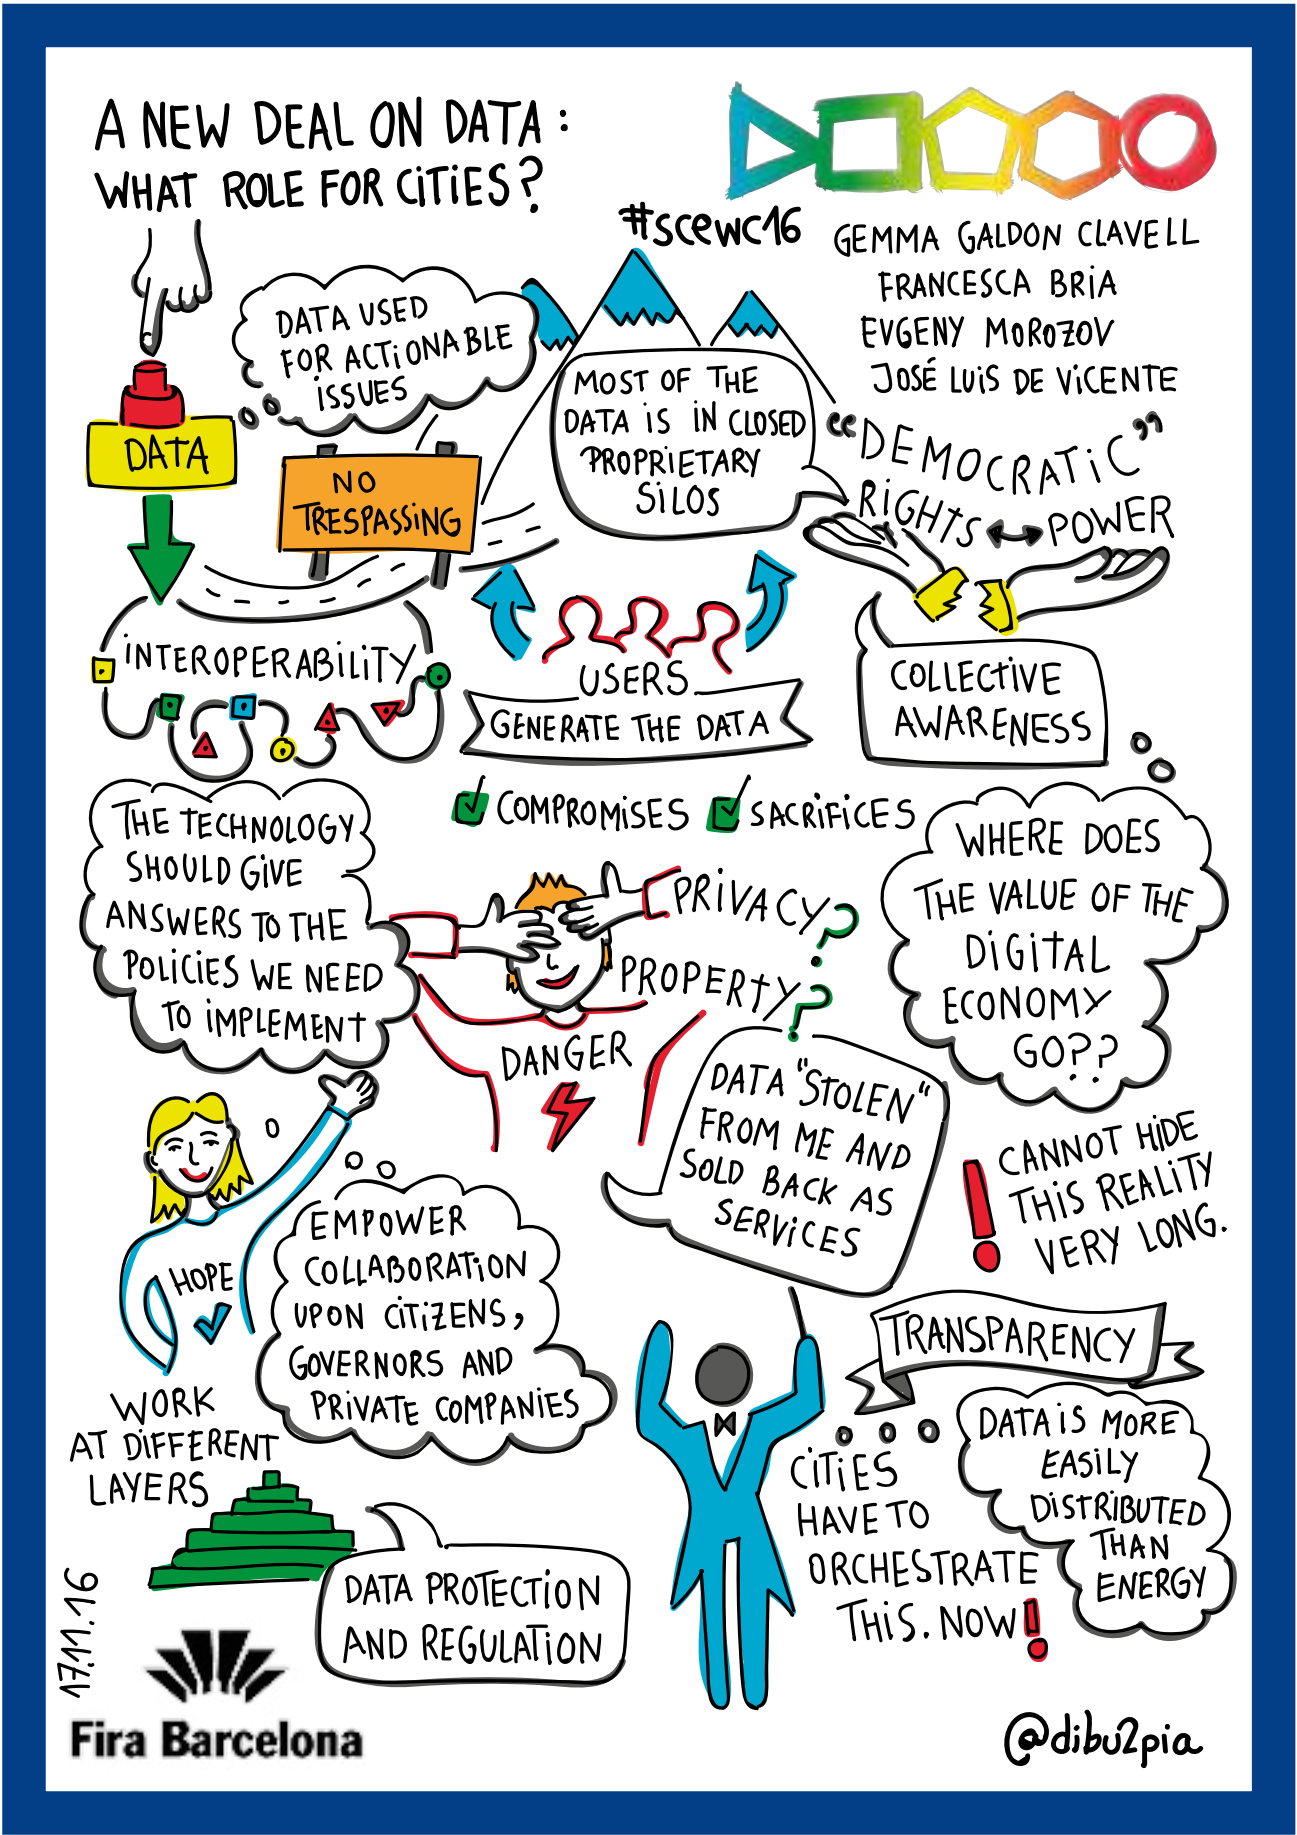 A NEW DEAL ON DATA :
WHAT ROLE FOR CiTiES?
#scewc16
GEMMA GALDON CLAVELL
FRANCESCA BRiA
EVGENY MOROZOV
JOSÉ LUiS DE ViCENTE
DATA USED
FOR ACTiONABLE
iSSUES
DATA
NO
TRESPASSiNG
MOST OF THE
DATA iS iN CLOSED
PROPRiETARY
SiLOS
"DEMOCRATiC"
RiGHTS ↔ POWER
iNTEROPERABiLiTY
USERS
GENERATE THE DATA
COLLECTiVE
AWARENESS
COMPROMiSES
SACRiFiCES
THE TECHNOLOGY
SHOULD GiVE
ANSWERS TO THE
POLiCiES WE NEED
TO iMPLEMENT
PRiVACY?
PROPERTY?
DANGER
WHERE DOES
THE VALUE OF THE
DiGiTAL
ECONOMY
GO??
DATA "STOLEN"
FROM ME AND
SOLD BACK AS
SERViCES
! CANNOT HiDE
THiS REALiTY
VERY LONG.
HOPE
EMPOWER
COLLABORATiON
UPON CiTiZENS,
GOVERNORS AND
PRiVATE COMPANiES
TRANSPARENCY
WORK
AT DiFFERENT
LAYERS
CiTiES
HAVE TO
ORCHESTRATE
THiS. NOW!
DATA iS MORE
EASiLY
DiSTRiBUTED
THAN
ENERGY
DATA PROTECTiON
AND REGULATiON
17.11.16
Fira Barcelona
@dibu2pia